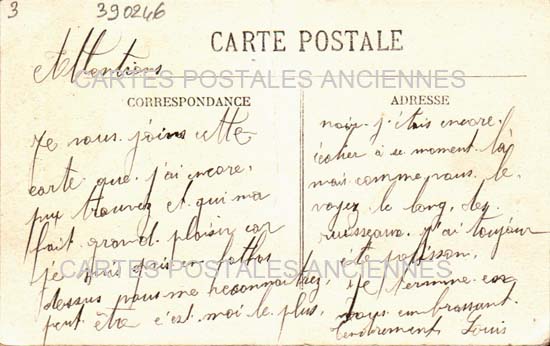 3
390246
CARTE POSTALE
Attentions
CARTES POSTALES ANCIENNES
CORRESPONDANCE
Je vous joins cette
carte que j'ai encore,
peu trouver et qui ma
fait grand plaisir car
je suis pris en
dessus vous me reconnaîtrez,
peut être c'est moi le plus,
ADRESSE
noir j'étais encore,
écolier à se moment là
mais comme vous le
voyez le long des
ruisseaux j'ai toujour
été polisson,
Je termine car
vous embrassant
tendrement Louis
CARTES POSTALES ANCIENNES